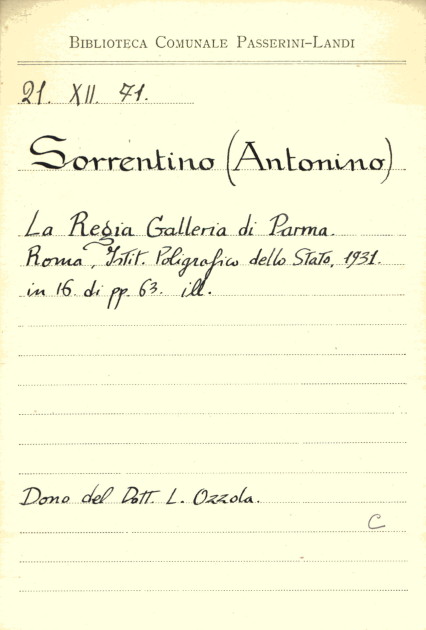 BIBLIOTECA COMUNALE PASSERINI-LANDI
21. XII. 71.
Sorrentino (Antonino)
La Regia Galleria di Parma.
Roma, Istit. Poligrafico dello Stato, 1931.
in 16. di pp. 63. ill.
Dono del Dott. L. Ozzola.
C